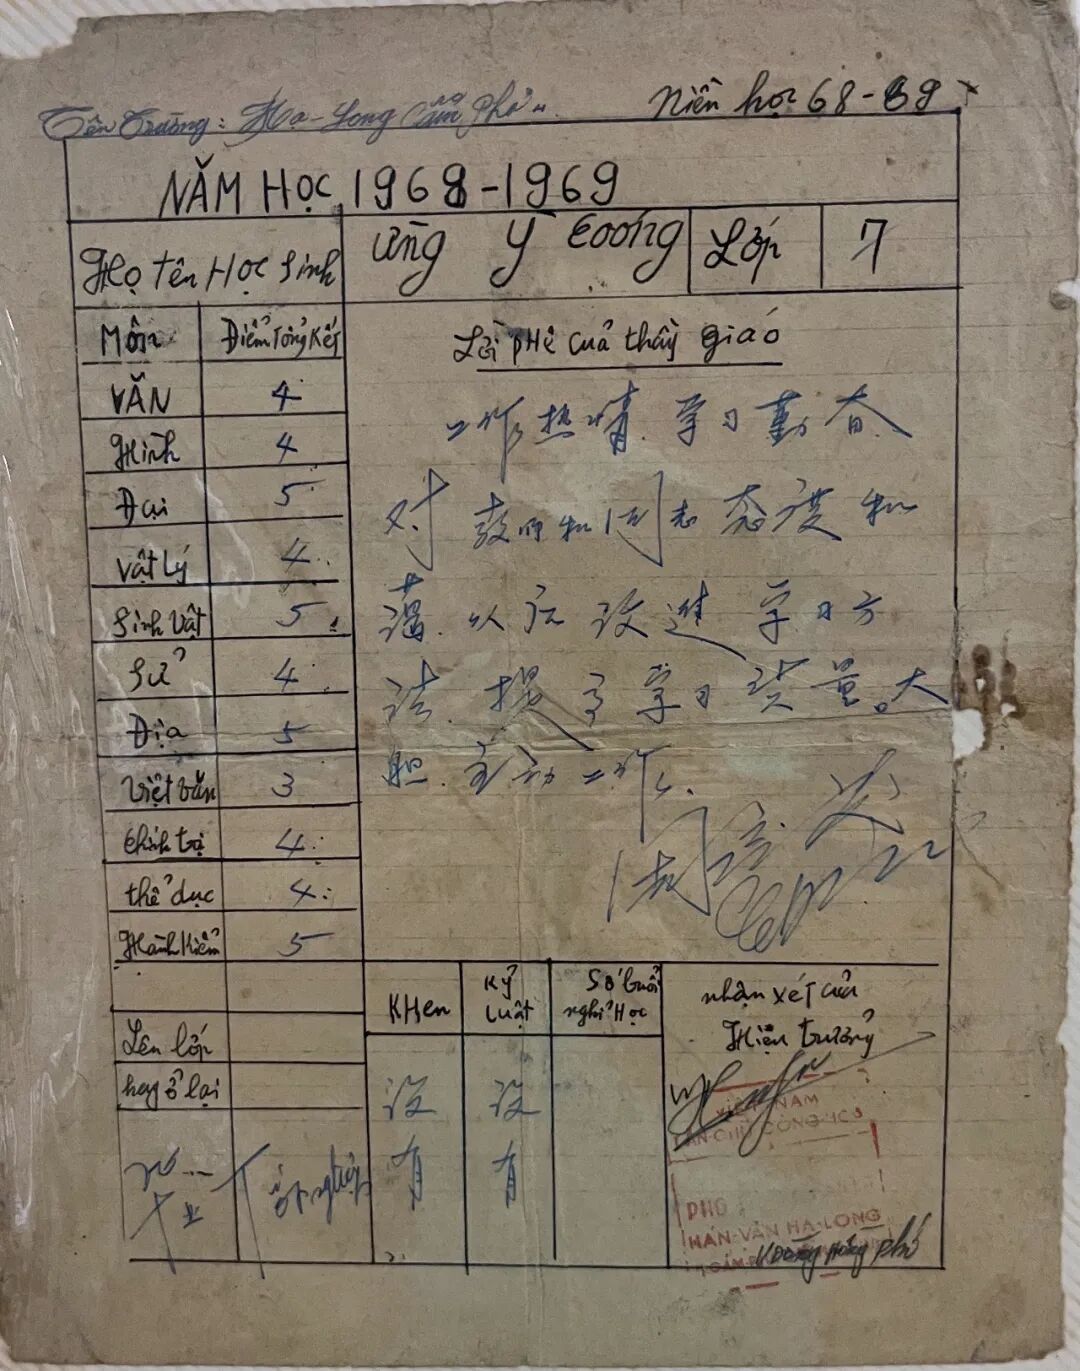 Tên Trường: Hạ-Long Cẩm Phả
Niên học 68-69
NĂM HỌC 1968-1969
Họ tên Học sinh
ừng Y Coóng
Lớp
7
Môn
Điểm Tổng Kết
Lời phê của thầy giáo
VĂN 4
Hình 4
Đại 5
Vật Lý 4
Sinh Vật 5
Sử 4
Địa 5
Việt văn 3
Chính trị 4
thể dục 4
Hành Kiểm 5
工作热情.学习勤奋
对教师和同志态度和
蔼.以后改进学习方
法.提高学习质量。大
胆.主动工作.
Lên lớp
hay ở lại
毕业
Tốt nghiệp
KHen
没有
Kỷ Luật
没有
Số buổi nghỉ Học
nhận xét của
Hiệu trưởng
VIỆT NAM
DÂN CHỦ CỘNG HOÀ
PHỔ
HÁN-VĂN HẠ-LONG